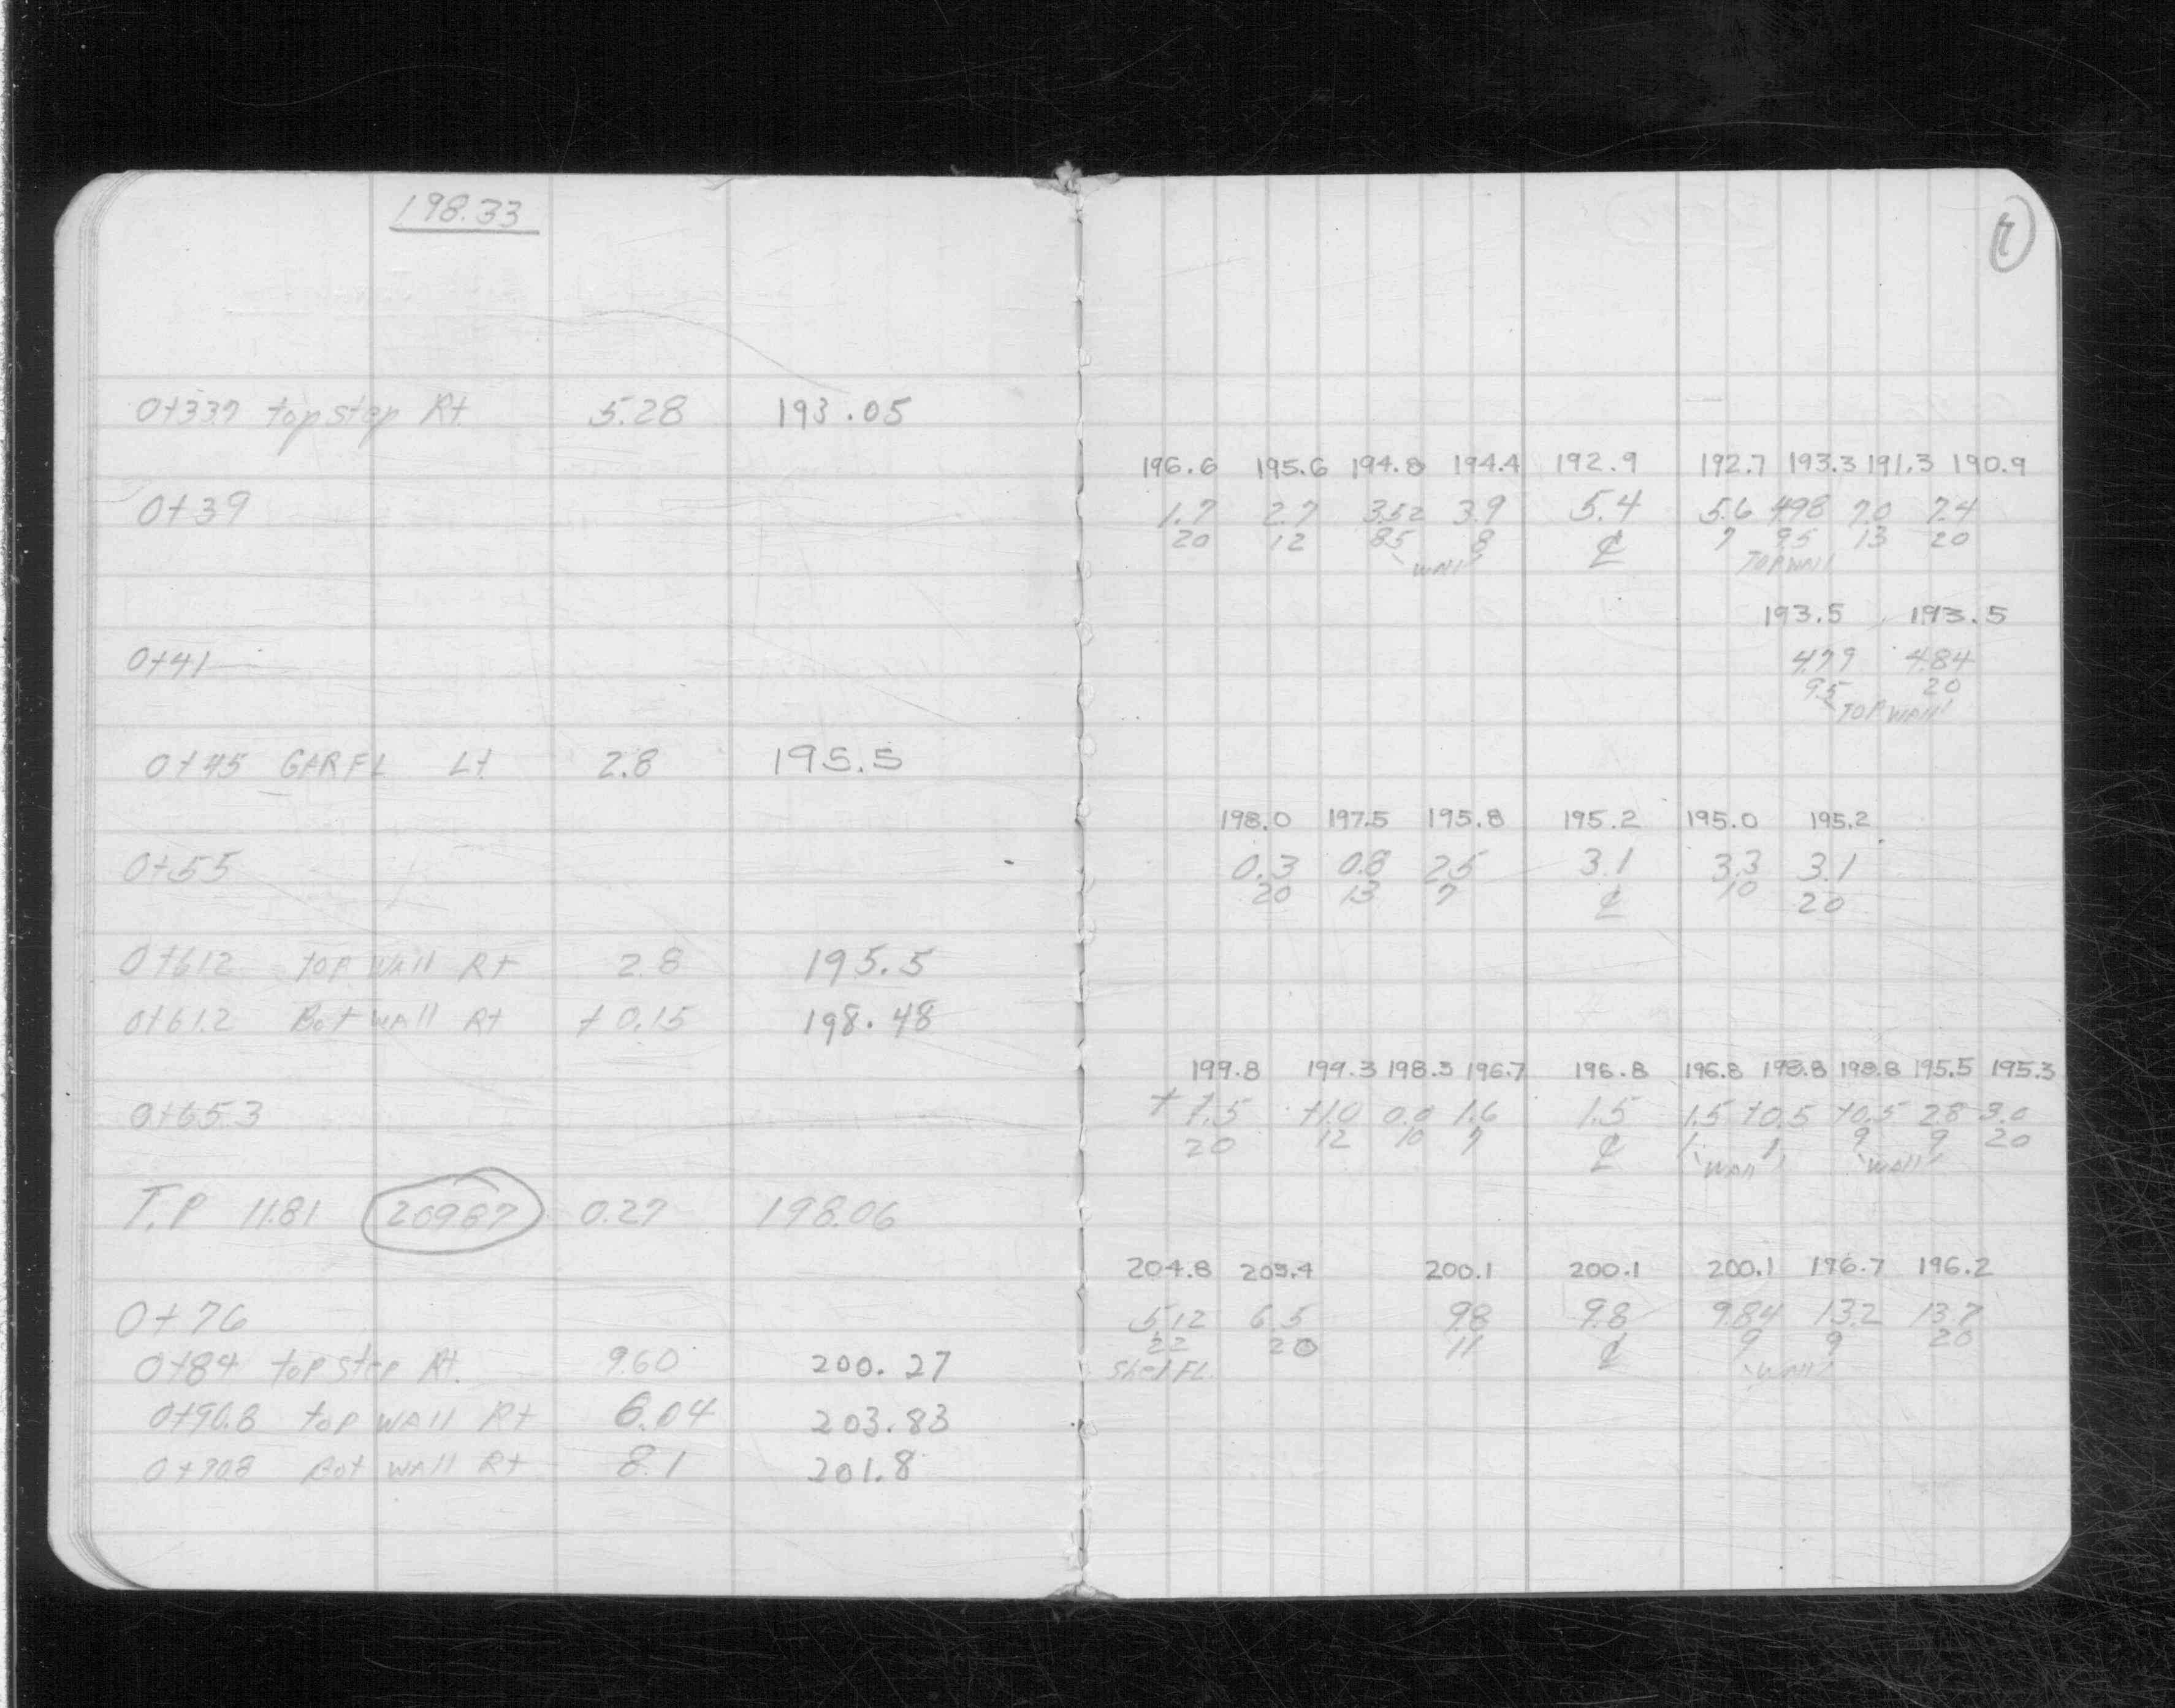 198.33
0+337 top step Rt 5.28 193.05
0+39
0+41
0+45 GAR FL Lt 2.8 195.5
0+55
0+612 top wall Rt 2.8 195.5
0+61.2 Bot wall Rt +0.15 198.48
0+65.3
T.P 11.81 209.87 0.27 198.06
0+76
0+84 top step Rt. 9.60 200.27
0+90.8 top wall Rt 6.04 203.83
0+90.8 Bot wall Rt 8.1 201.8
196.6 195.6 194.8 194.4 192.9 192.7 193.3 191.3 190.9
1.7 2.7 3.52 3.9 5.4 5.6 498 7.0 7.4
20 12 85 8 ₵ 7 95 13 20
wall TOP wall
193.5 193.5
4.79 484
95 20
TOP wall
198.0 197.5 195.8 195.2 195.0 195.2
0.3 0.8 25 3.1 3.3 3.1
20 13 7 ₵ 10 20
199.8 199.3 198.3 196.7 196.8 196.8 198.8 198.8 195.5 195.3
+1.5 +1.0 0.0 1.6 1.5 1.5 +0.5 +0.5 28 3.0
20 12 10 7 ₵ 9 9 20
wall wall
204.8 203.4 200.1 200.1 200.1 196.7 196.2
5.12 6.5 98 9.8 984 13.2 13.7
22 20 11 ₵ 9 9 20
FL wall